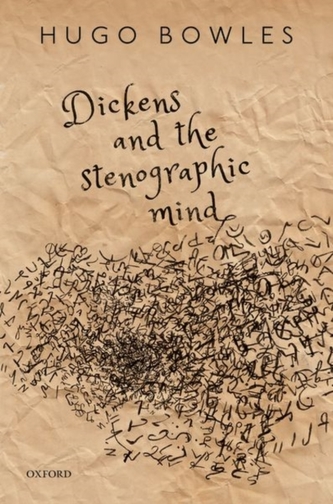 HUGO BOWLES
Dickens
and the
stenographic
mind
OXFORD